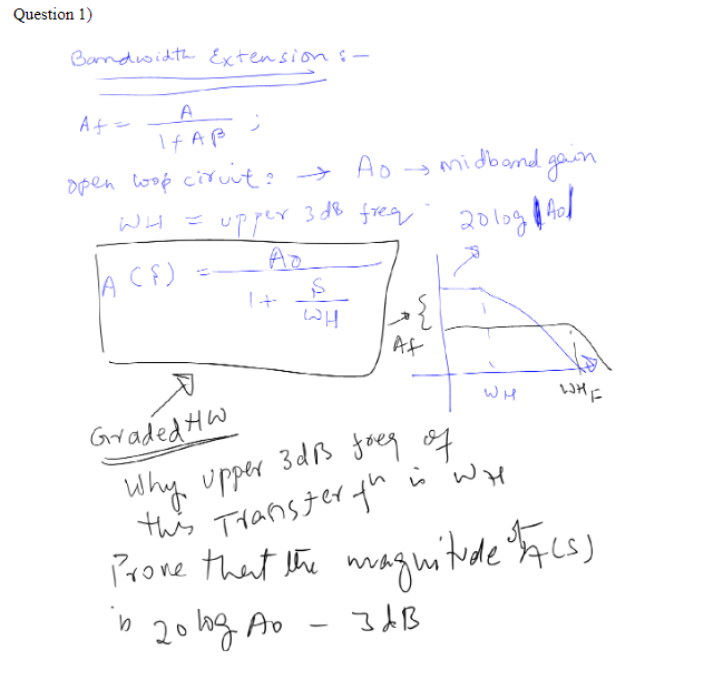 Question 1)
Bandwidth Extension :-
Af = A / 1 + AB ;
open loop circuit : → Ao → midband gain
WH = upper 3dB freq
20 log |Ao|
A (s) = Ao / 1 + s / WH
Af
WH
WHF
Graded HW
Why upper 3dB freq of
this Transfer fn is WH
Prove that the magnitude of A(s)
is 20 log Ao - 3dB